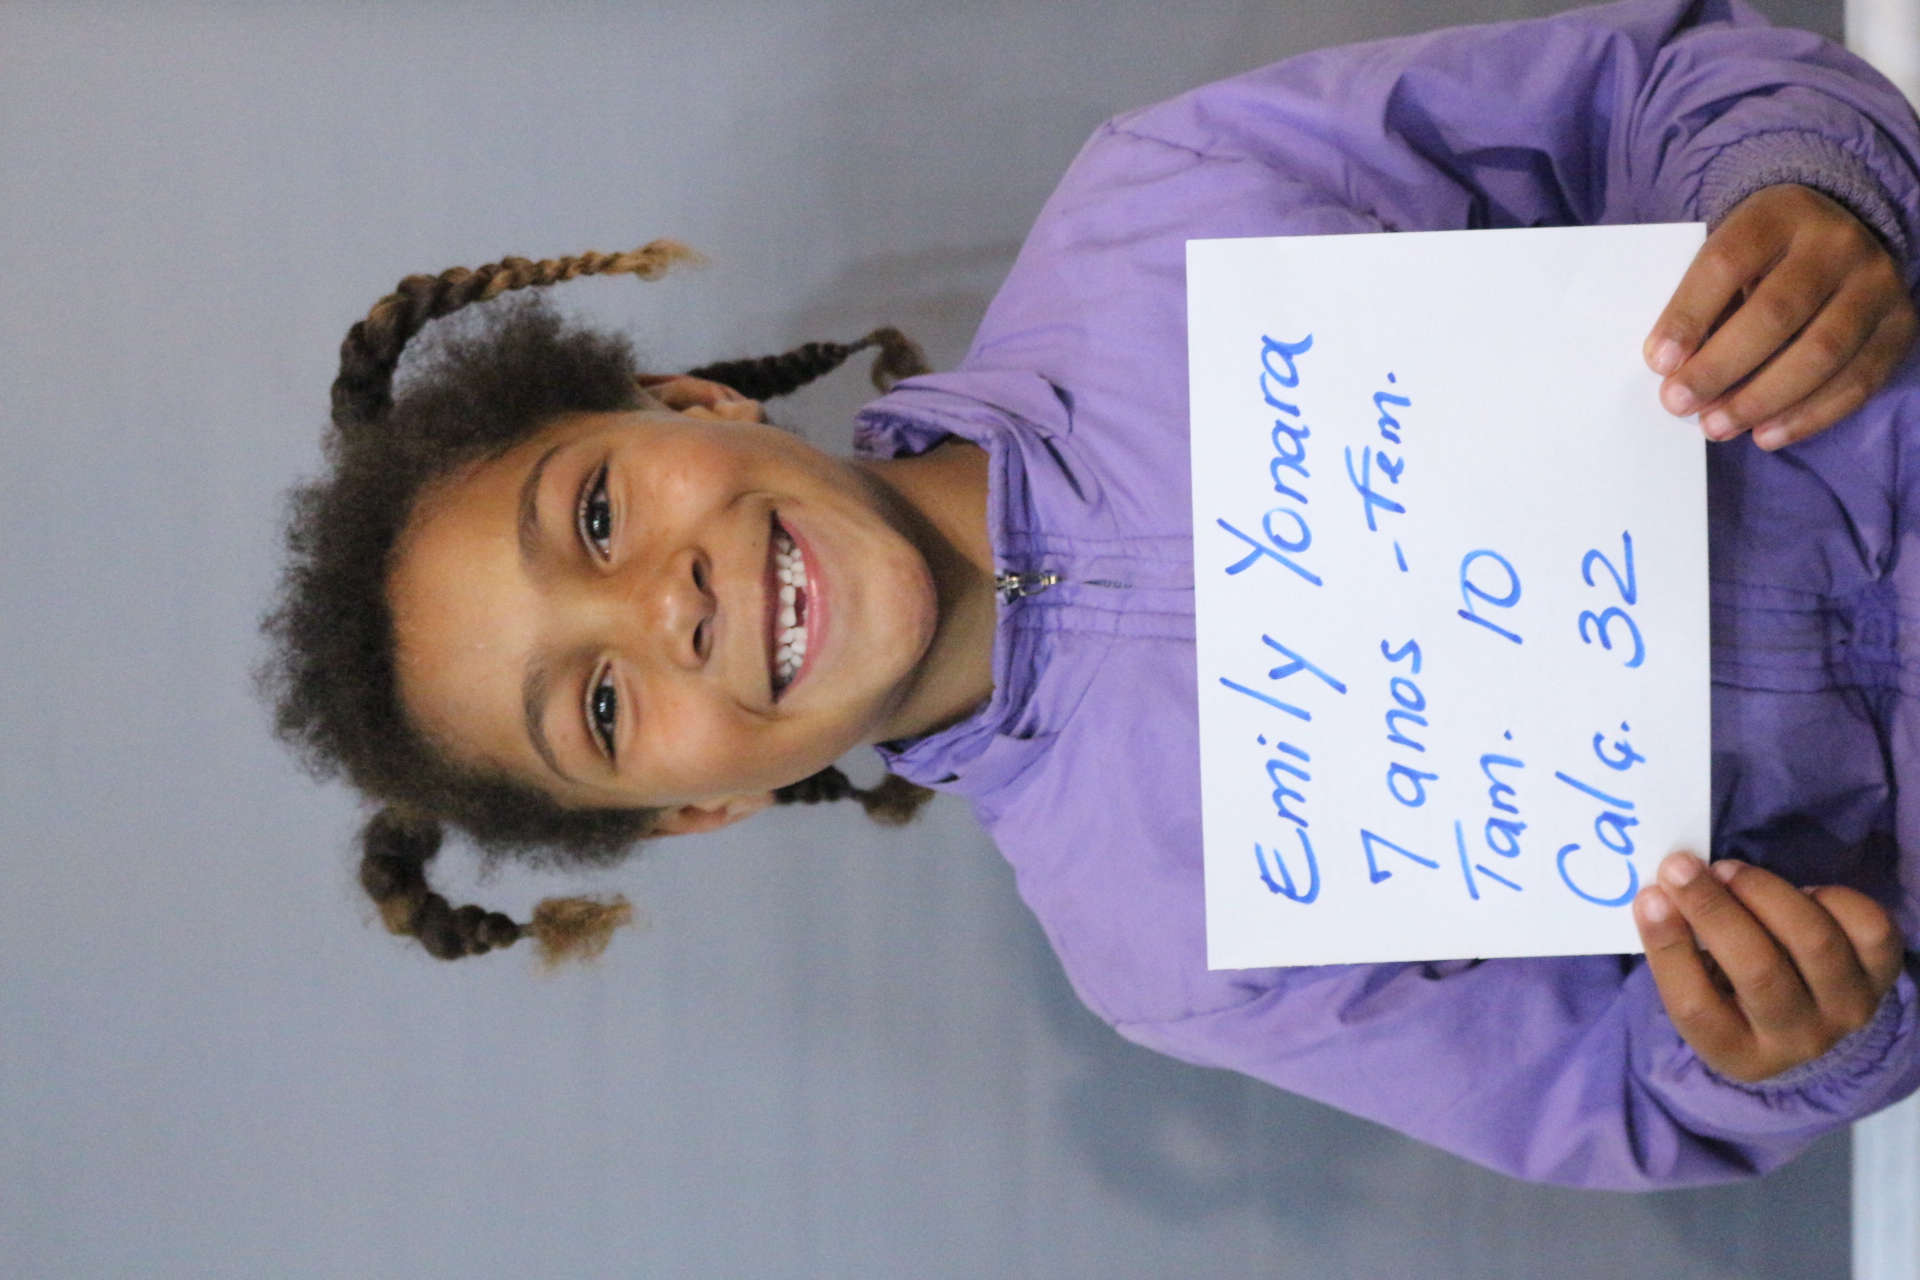 Emily Yonara
7 anos - Fem.
Tam. 10
Calç. 32